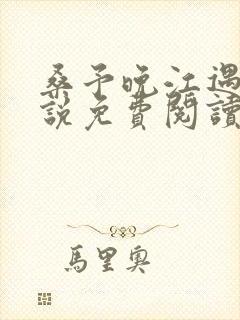 桑予晚江遇
說免費閱讀
馬里奧